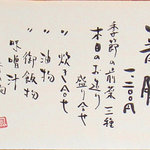 一、三〇〇円
季節の前菜三種
本日のお造り盛り合せ
〃 焼き合せ
〃 油物
〃 御飯物
味噌汁